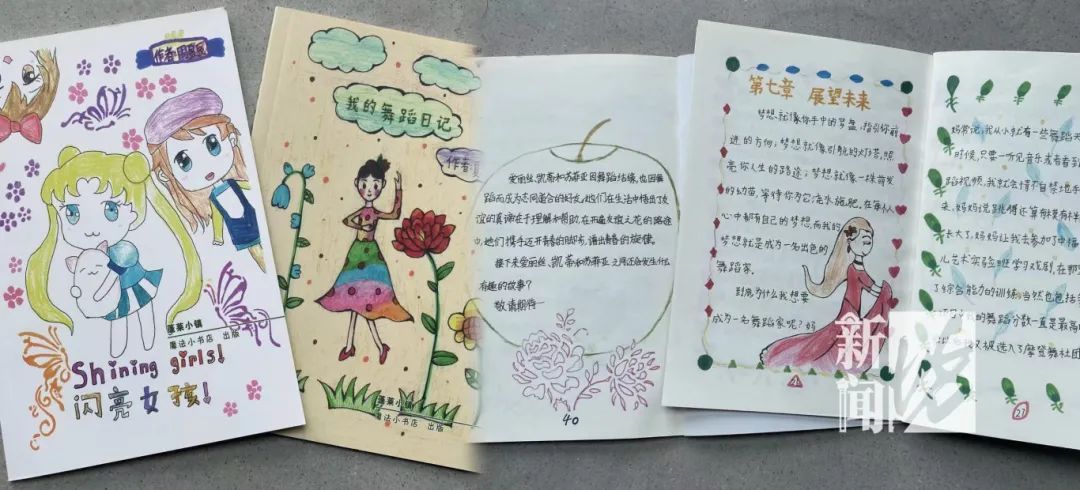 Shining girls!
闪亮女孩!
蓬莱小镇
魔法小书店 出版
我的舞蹈日记
蓬莱小镇
魔法小书店 出版
爱丽丝、凯蒂和苏菲亚因舞蹈结缘,也因舞
蹈而成为志同道合的好友,她们在生活中悟出了友
谊的真谛在于理解和帮助,在开遍友谊之花的路途
中,她们携手迈开青春的脚步,谱出青春的旋律。
接下来爱丽丝、凯蒂和苏菲亚之间还会发生什么
有趣的故事?
敬请期待
40
第七章 展望未来
梦想就像你手中的罗盘,指引你前
进的方向;梦想就像引航的灯塔,照
亮你人生的路途;梦想就像一株萌发
的幼苗,等待你为它浇水施肥。在每个人
心中都有自己的梦想,而我的
梦想就是成为一名出色的
舞蹈家。
到底为什么我想要
成为一名舞蹈家呢?妈
妈常说,我从小就有一些舞蹈天
时候,只要一听见音乐或者看到
蹈视频,我就会情不自禁地手
来,妈妈说跳得还算有模有样
长大了,妈妈让我去参加了中福
儿艺术实验班学习戏剧,在那
了综合能力的训练,当然也包括
我的舞蹈分数一直是最高
又被选入了摩登舞社团
27
新闻